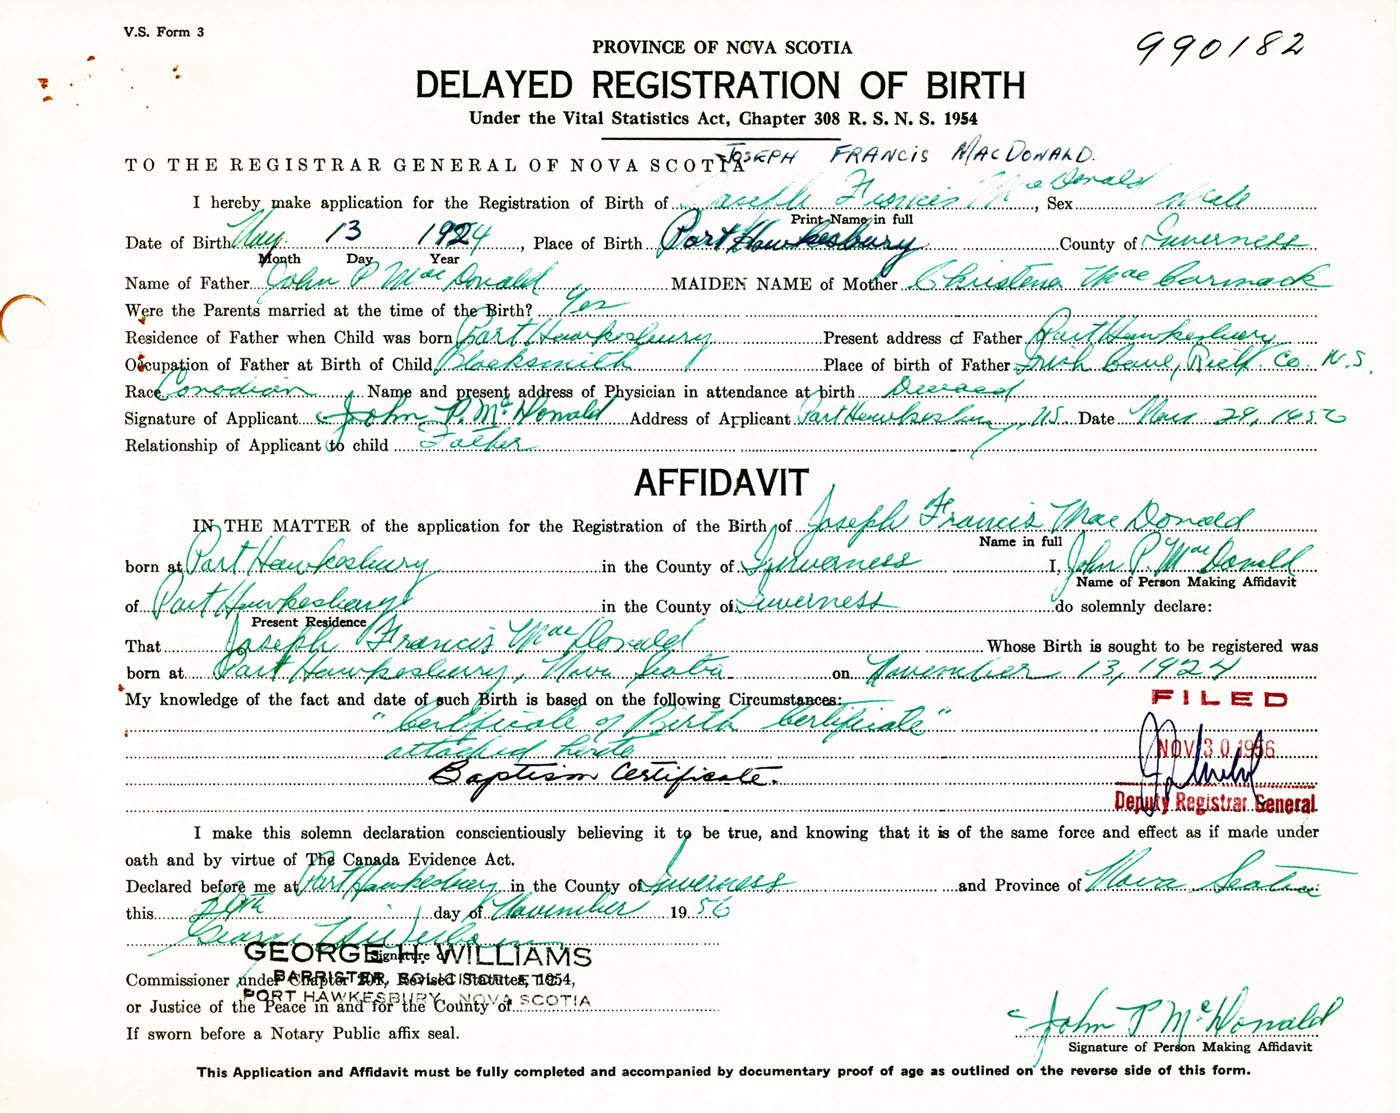 V.S. Form 3
990182
PROVINCE OF NOVA SCOTIA
DELAYED REGISTRATION OF BIRTH
Under the Vital Statistics Act, Chapter 308 R. S. N. S. 1954
JOSEPH FRANCIS MACDONALD.
TO THE REGISTRAR GENERAL OF NOVA SCOTIA
I hereby make application for the Registration of Birth of Joseph Francis MacDonald, Sex Male
Print Name in full
Date of Birth Nov. 13 1924, Place of Birth Port Hawkesbury County of Inverness
Month Day Year
Name of Father John P MacDonald MAIDEN NAME of Mother Christena MacCormack
Were the Parents married at the time of the Birth? Yes
Residence of Father when Child was born Port Hawkesbury Present address of Father Port Hawkesbury
Occupation of Father at Birth of Child Blacksmith Place of birth of Father Irish Cove, Rich Co N.S.
Race Canadian Name and present address of Physician in attendance at birth Deceased
Signature of Applicant John P. McDonald Address of Applicant Port Hawkesbury, N.S. Date Nov. 29, 1956
Relationship of Applicant to child Father
AFFIDAVIT
IN THE MATTER of the application for the Registration of the Birth of Joseph Francis MacDonald
Name in full
born at Port Hawkesbury in the County of Inverness I, John P. MacDonald
Name of Person Making Affidavit
of Port Hawkesbury in the County of Inverness do solemnly declare:
Present Residence
That Joseph Francis MacDonald Whose Birth is sought to be registered was
born at Port Hawkesbury, Nova Scotia on November 13, 1924
My knowledge of the fact and date of such Birth is based on the following Circumstances:
FILED
"Certificate of Birth Certificate"
attached hereto
NOV 30 1956
Baptism Certificate.
Deputy Registrar General
I make this solemn declaration conscientiously believing it to be true, and knowing that it is of the same force and effect as if made under
oath and by virtue of The Canada Evidence Act.
Declared before me at Port Hawkesbury in the County of Inverness and Province of Nova Scotia
this 29th day of November 1956
GEORGE H. WILLIAMS
Signature of
BARRISTER, SOLICITOR, ETC.
Commissioner under Chapter 201, Revised Statutes, 1954,
PORT HAWKESBURY, NOVA SCOTIA
or Justice of the Peace in and for the County of
If sworn before a Notary Public affix seal.
John P McDonald
Signature of Person Making Affidavit
This Application and Affidavit must be fully completed and accompanied by documentary proof of age as outlined on the reverse side of this form.